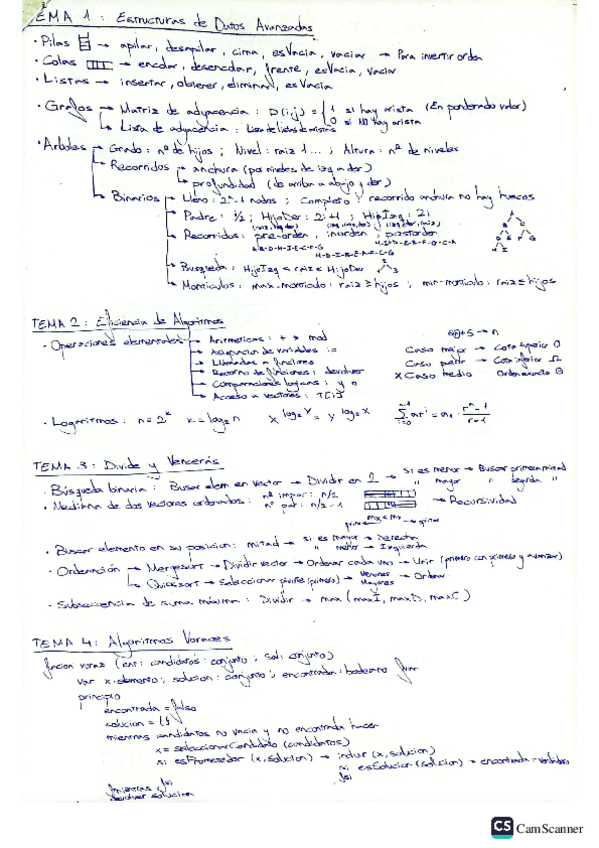 TEMA 1: Estructuras de Datos Avanzadas
· Pilas → apilar, desapilar, cima, esVacia, vaciar → Para invertir orden
· Colas → encolar, desencolar, frente, esVacia, vaciar
· Listas → insertar, obtener, eliminar, esVacia
· Grafos → Matriz de adyacencia: D(i,j) = { 1 si hay arista (En ponderado valor)
0 si NO hay arista
→ Lista de adyacencia: Lista de listas de aristas
· Arboles → Grado: nº de hijos; Nivel: raiz 1...; Altura: nº de niveles
→ Recorridos → anchura (por niveles de izq a der)
→ profundidad (de arriba a abajo y der)
→ Binarios → Lleno: 2ⁿ-1 nodos; Completo: recorrido anchura no hay huecos
→ Padre: i/2; HijoDer: 2i+1; HijoIzq: 2i
→ Recorridos: pre-orden, inorden, postorden
A-B-D-H-I-E-C-F-G
→ Busqueda: HijoIzq < raiz < HijoDer
→ Monticulos: max-monticulo: raiz ≥ hijos; min-monticulo: raiz ≤ hijos
TEMA 2: Eficiencia de Algoritmos
· Operaciones elementales → Aritmeticas: + * mod
→ Asignacion de variables :=
→ Llamadas a funciones
→ Retorno de funciones: devolver
→ Comparaciones logicas: y o
→ Acceso a vectores: T[i]
60+5 → n
Caso mejor → Cota superior O
Caso peor → Cota inferior Ω
x Caso medio Orden exacto Θ
· Logaritmos: n=2ᵏ k=log₂n x^log₂y = y^log₂x
TEMA 3: Divide y Vencerás
· Búsqueda binaria: Buscar elem en vector → Dividir en 2 → si es menor → Buscar primera mitad
" mayor " segunda "
· Mediana de dos vectores ordenados: nº impar: n/2
nº par: n/2-1 → Recursividad
· Buscar elemento en su posicion: mitad → si es mayor → Derecha
" menor → Izquierda
· Ordenación → Mergesort → Dividir vector → Ordenar cada uno → Unir (primero con primero y avanzar)
→ Quicksort → Seleccionar pivote (primero) → Menores
Mayores → Ordenar
· Subsecuencia de suma máxima: Dividir → max(maxI, maxD, maxC)
TEMA 4: Algoritmos Voraces
funcion voraz (ent: candidatos: conjunto; sal: conjunto)
var x: elemento; solucion: conjunto; encontrada: booleano fvar
principio
encontrada = falso
solucion = {∅}
mientras candidatos no vacia y no encontrada hacer
x = seleccionarCandidato (candidatos)
si esPrometedor (x, solucion) → incluir (x, solucion)
si esSolucion (solucion) → encontrada = verdadero
fsi
fsi
fmientras
devolver solucion
CS CamScanner